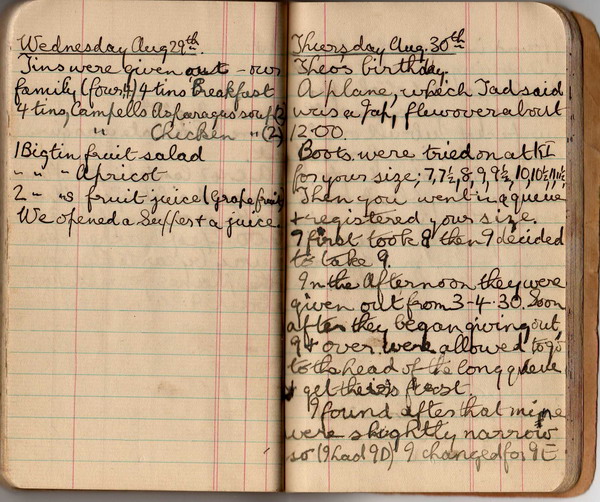 Wednesday Aug 29th.
Tins were given out - our
family (four!) 4 tins Breakfast
4 tins, Campells Asparagus soup (2)
" Chicken " (2)
1 Big tin fruit salad
" " " Apricot
2 " " s fruit juice (Grapefruit)
We opened a & a juice
Thursday Aug. 30th
Theo's birthday.
A plane, which Tad said
was a Jap, flew over about
12.00.
Boots were tried on at
for your size; 7, 7½, 8, 9, 9½, 10, 10½, 11, 11½
Then you went in a queue
+ registered your size.
I first took 8 then I decided
to take 9.
In the Afternoon they were
given out from 3-4.30. Soon
after they began giving out,
9 + over were allowed to go
to the head of the long queue
+ get theirs first.
I found after that mine
were slightly narrow
so (I had 9D) I changed for 9E